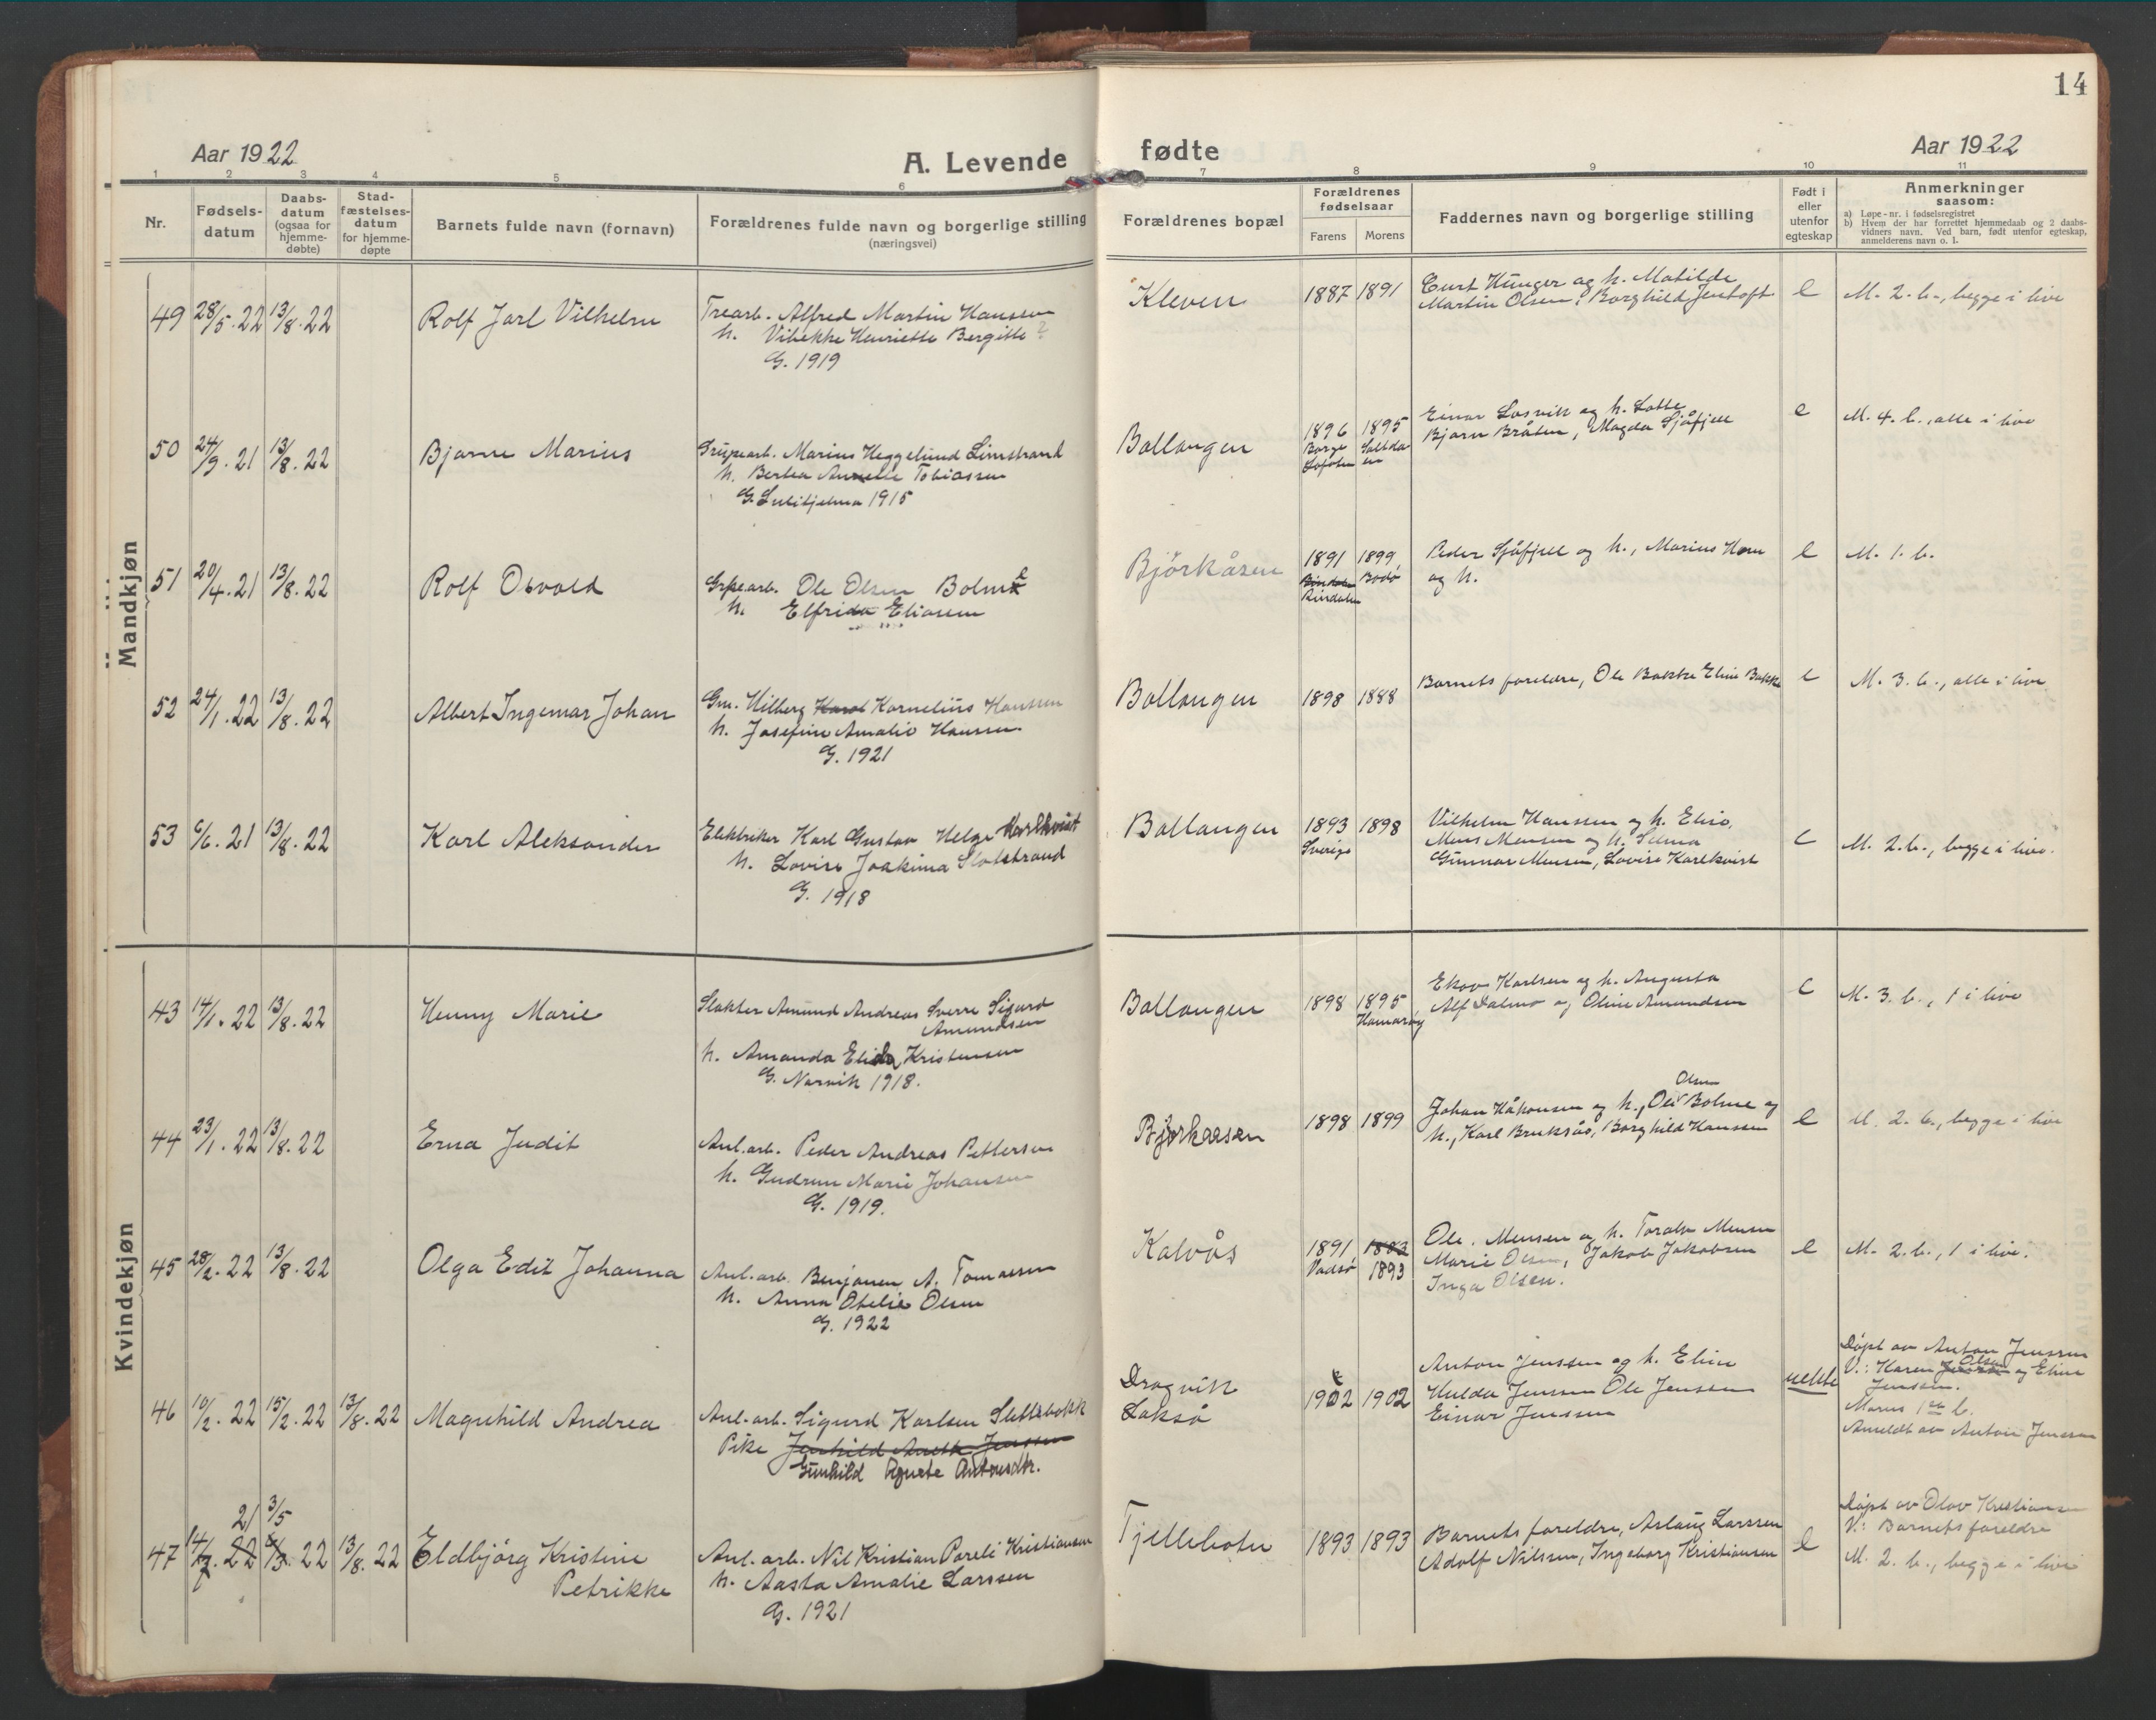 14
Aar 1922
A. Levende fødte
Aar 1922
1 2 3 4 5 6 7 8 9 10 11
Nr.
Fødsels-
datum
Daabs-
datum
(ogsaa for
hjemme-
døbte)
Stad-
fæstelses-
datum
for hjemme-
døpte
Barnets fulde navn (fornavn)
Forældrenes fulde navn og borgerlige stilling
(næringsvei)
Forældrenes bopæl
Forældrenes
fødselsaar
Farens Morens
Faddernes navn og borgerlige stilling
Født i
eller
utenfor
egteskap
Anmerkninger
saasom:
a) Løpe-nr. i fødselsregistret
b) Hvem der har forrettet hjemmedaab og 2 daabs-
vidners navn. Ved barn, født utenfor egteskap,
anmelderens navn o. l.
Mandkjøn
49 28/5.22 13/8.22 Rolf Jarl Vilhelm
Trearb. Alfred Martin Hanssen
h. Vibekke Henriette Bergitte ?
G. 1919
Kleven 1887 1891
Curt Hunger og h. Matilde
Martin Olsen, Borghild Jentoft
e
M. 2. b., begge i live
50 24/9.21 13/8.22 Bjarne Marius
Grupearb. Marius Heggelund Limstrand
h. Bertea Annette Tobiassen
G. Sulitjelma 1915
Ballangen 1896 1895
Borge Saltda-
Lofoten en
Einar Losvik og h. Lotte
Bjarn Bråten, Magda Sjåfjell
e
M. 4. b., alle i live
51 20/4.21 13/8.22 Rolf Osvald
Grpe.arb. Ole Olsen Bolme
h. Elfrida Eliasen
Björkåsen 1891 1899
Bindalen Bodø
Bindalen
Peder Sjåfjell og h., Marius Horn
og h.
e
M. 1. b.
52 24/1.22 13/8.22 Albert Ingemar Johan
Gm. Hilberg Karol Kornelius Hanssen
h. Josefine Amalie Hanssen
G. 1921
Ballangen 1898 1888
Barnets foreldre, Ole Bakke Eline Bakke
e
M. 3. b., alle i live
53 6/6.21 13/8.22 Karl Aleksander
Elektriker Karl Gustav Helge Karlkvist
h. Lovise Joakima Slotstrand
G. 1918
Ballangen 1893 1898
Sverige
Vilhelm Hanssen og h. Elise,
Mens Mensen og h. Selma
Gunnar Mensen, Lovise Karlkvist
e
M. 2. b., begge i live.
Kvindekjøn
43 14/1.22 13/8.22 Henny Marie
Slakter Amund Andreas Sverre Sigurd
Amundsen
h. Amanda Elida Kristensen
G. Narvik 1918.
Ballangen 1898 1895
Hamarøy
Karlsen og h. Augusta
Alf Dalmo og Oline Amundsen
e
M. 3. b., 1 i live
44 23/1.22 13/8.22 Erna Judit
Anl.arb. Peder Andreas Pettersen
h. Gudrun Marie Johansen
G. 1919.
Bjørkaasen 1898 1899
Olsen
Johan Håkonsen og h., Ole Bolme og
h., Karl Bruksås, Borghild Hanssen
e
M. 2. b., begge i live
45 28/2.22 13/8.22 Olga Edit Johanna
Anl.arb. Benjamen A. Tomassen
h. Anna Otelie Olsen
G. 1922
Kalvås 1891 1883
Vadsø 1893
Ole. Mensen og h. Toralv Mensen
Marie Olsen, Jakob Jakobsen
Inga Olsen.
e
M. 2. b., 1 i live.
46 10/2.22 15/2.22 13/8.22 Magnhild Andrea
Anl.arb. Sigurd Karlsen Slettebakk
Pike Jenhild Anette Jenssen
Gunhild Agnete Antonsdtr.
Dragvik
Lakså
1902 1902
Anton Jenssen og h. Eline
Hulda Jenssen Ole Jenssen
Einar Jenssen
uekte
Døpt av Anton Jenssen
V.: Karen Olsen og Eline
Jenssen.
Morens 1ste b.
Anmeldt av Anton Jenssen
21 3/5
47 14/7.22 6/3.22 13/8.22 Eldbjörg Kristine
Petrikke
Anl.arb. Nil Kristian Pareli Kristiansen
h. Aasta Amalie Larssen
G. 1921
Tjellebotn 1893 1893
Barnets foreldre, Aslaug Larssen
Adolf Nilssen, Ingeborg Kristiansen
e
Døpt av Olav Kristiansen
V.: Barnets foreldre
M. 2. b., begge i live